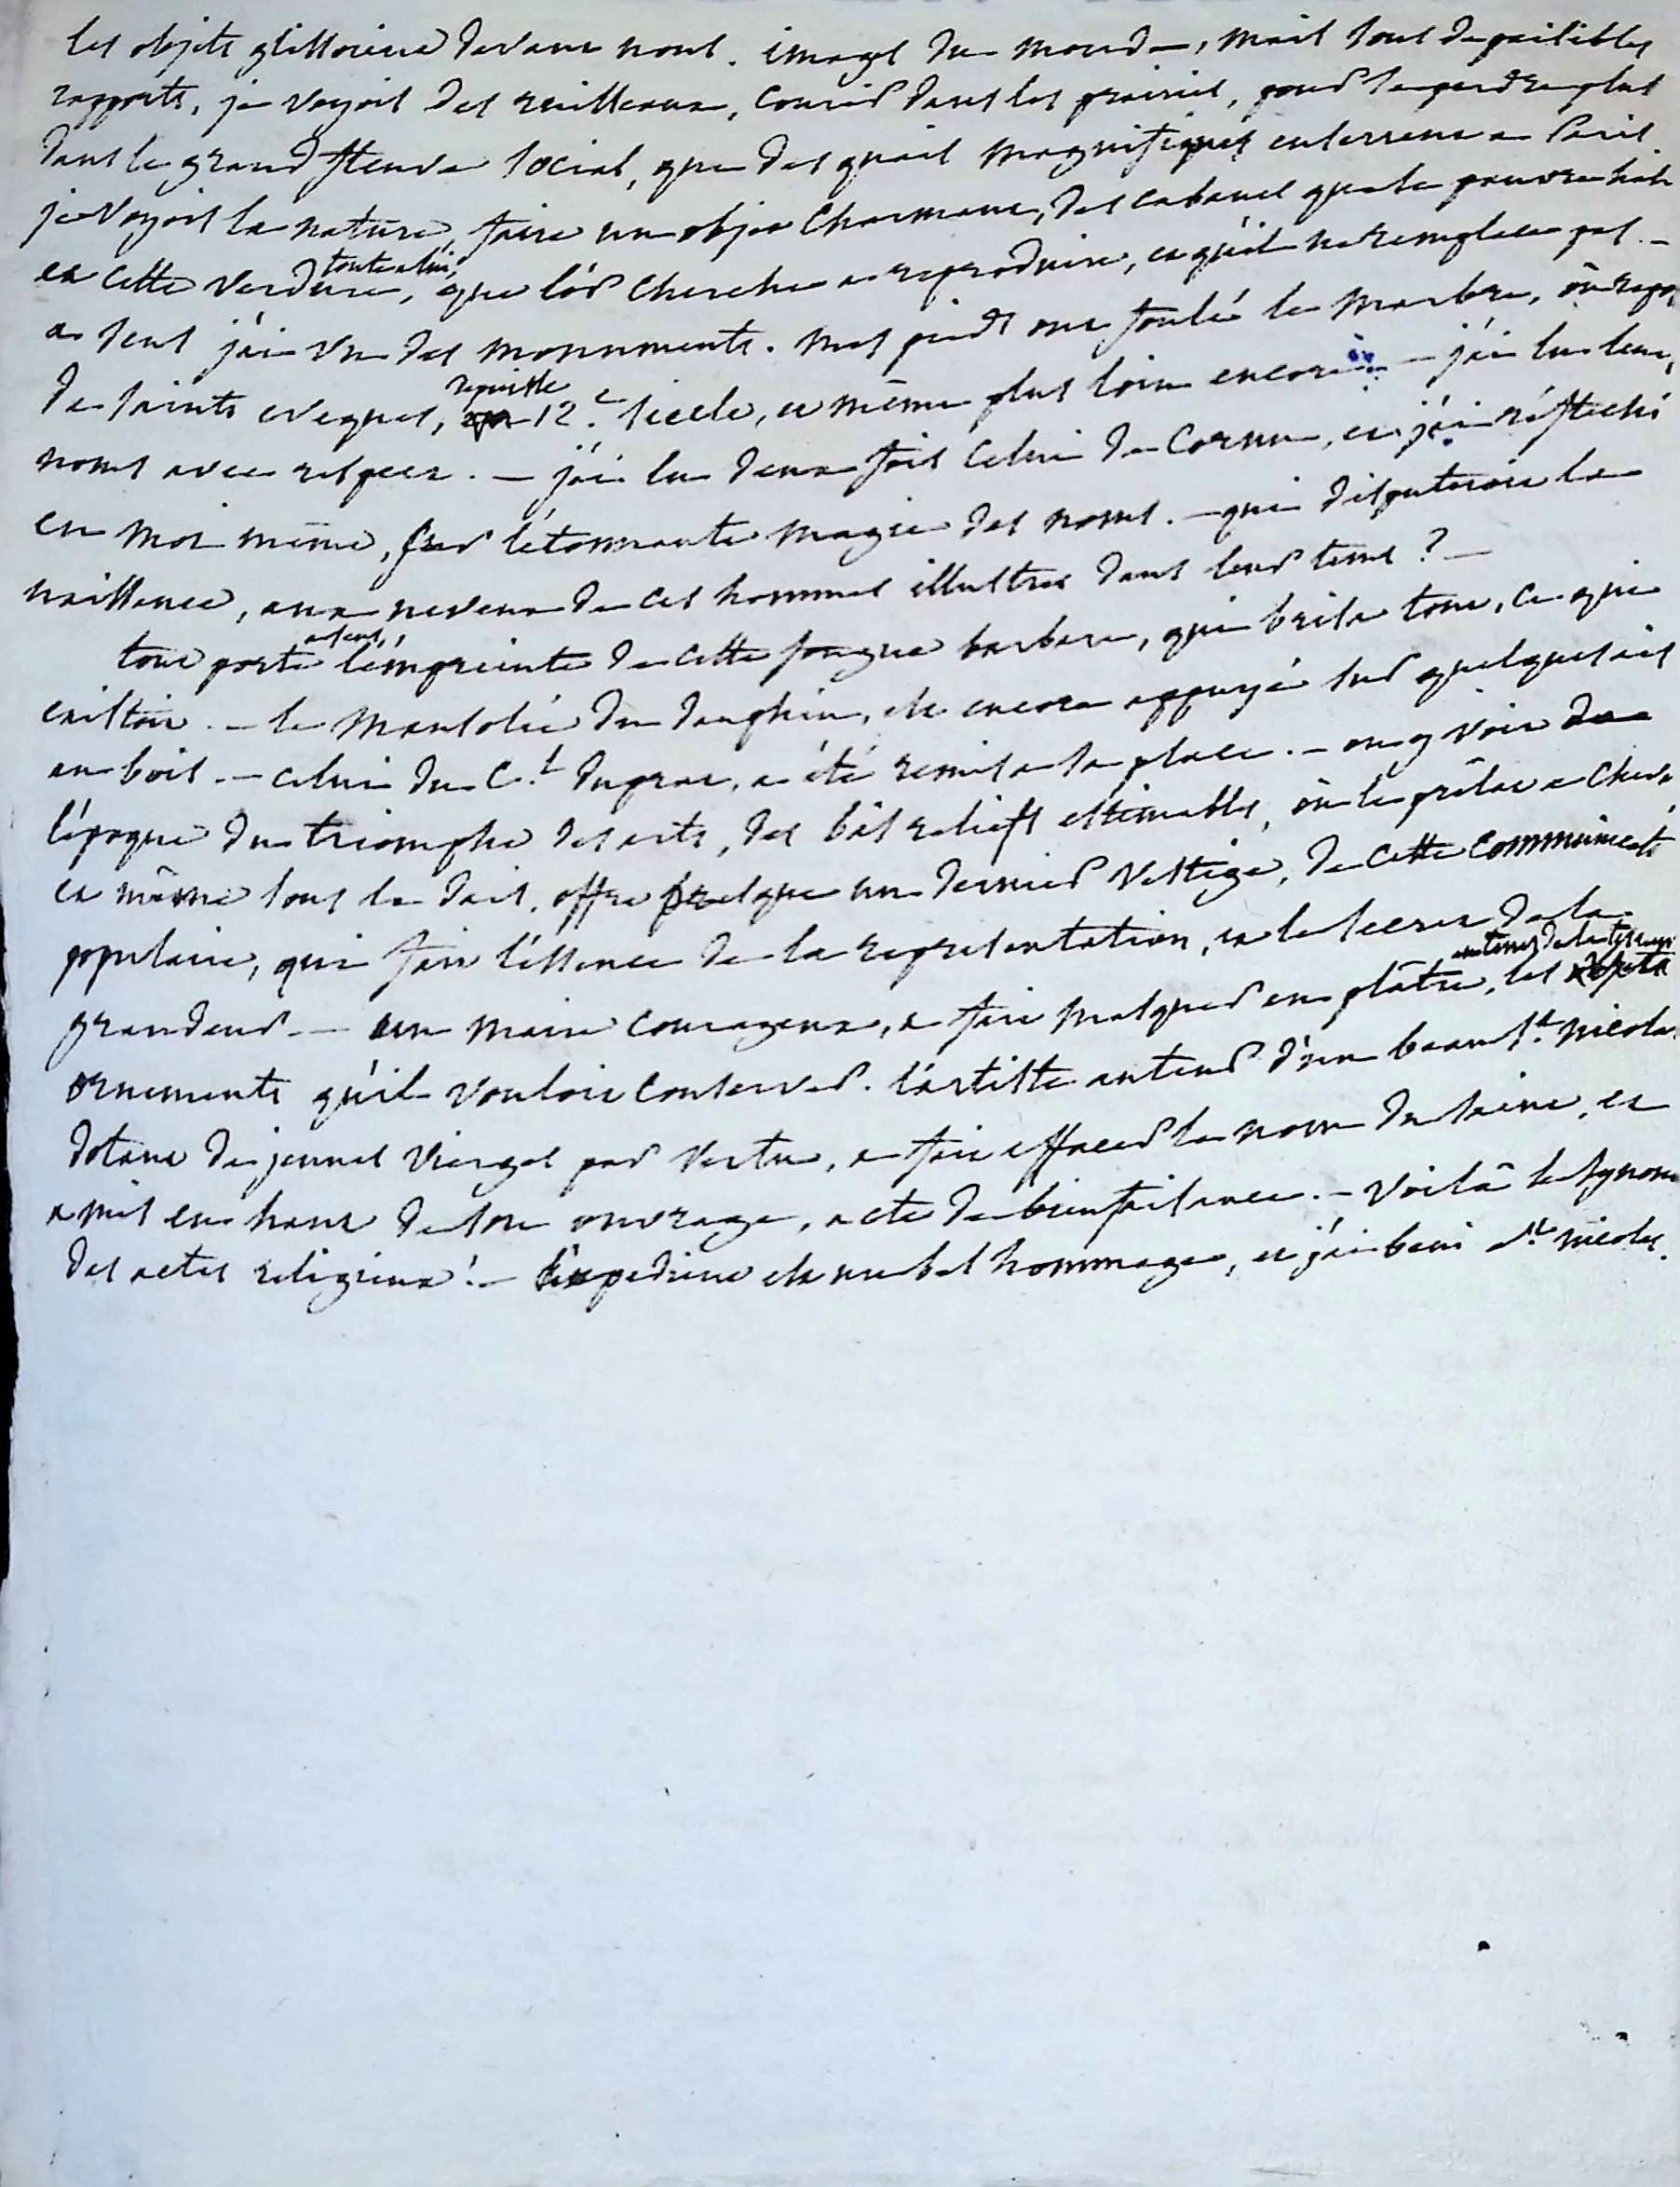 les objets glissoient devant nous. image du monde, mais sous de paisibles
rapports, je voyois des ruisseaux, courir dans les prairies, pour se perdre plus
dans le grand fleuve social, que des quais magnifiques enserrent a Paris
je voyois la nature, faire un objet charmant, des cabanes que le pauvre hab
et cette verdure, toute a lui, que l'or cherche a reproduire, et qu'il ne remplace pas. –
a sens j'ai vu des monuments. mes pieds ont foulé le marbre, où repo
de saints eveques, depuis le 12.e siecle, et même plus loin encore – j'ai lu leurs
noms avec respect. – j'ai lu deux fois celui de Cornu, et j'ai réfléchi
en moi même, sur l'étonnante magie des noms. – qui disputeroit la
naissance, aux neveux de ces hommes illustres dans leur tems ? –
tout porte a sens, l'émpreinte de cette fougue barbare, qui brisa tout, ce qui
existoit. – le mausolée du dauphin, est encore appuyé sur quelques ais
en bois. – celui du C.l duprat, a été remis a sa place. – on y voit de
l'époque du triomphe des arts, des bas reliefs estimables, où le prélat a cheva
et même sous le dais, offre presque un dernier vestige, de cette communicati
populaire, qui fait l'essence de la representation, et le secret de la
grandeur. – un maire courageux, a fait masquer en plâtre, au tems de la terreur les
ornements qu'il vouloit conserver. l'artiste auteur d'un beau st. nicolas
dotant de jeunes vierges par vertu, a fait effacer le nom du saint, et
a mis en haut de son ouvrage, acte de bienfaisance. – voilà le synon
des actes religieux ! – l'expedient est un bel hommage, et j'ai beni st. nicolas.